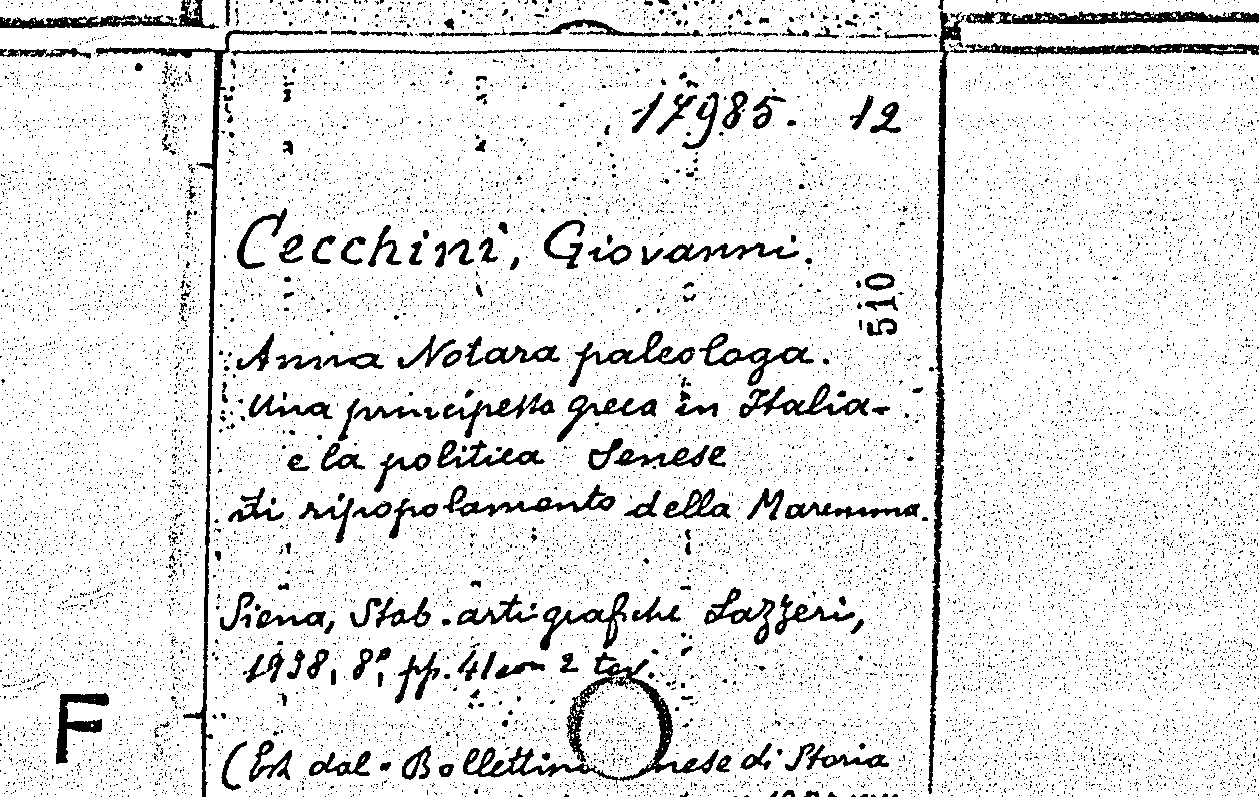 17985. 12
Cecchini, Giovanni.
510
Anna Notara paleologa.
Una principessa greca in Italia
e la politica Senese
di ripopolamento della Maremma.
Siena, Stab. arti grafiche Lazzeri,
1938, 8º, pp. 41 con 2 tav.
F
(Est. dal "Bollettino nese di Storia